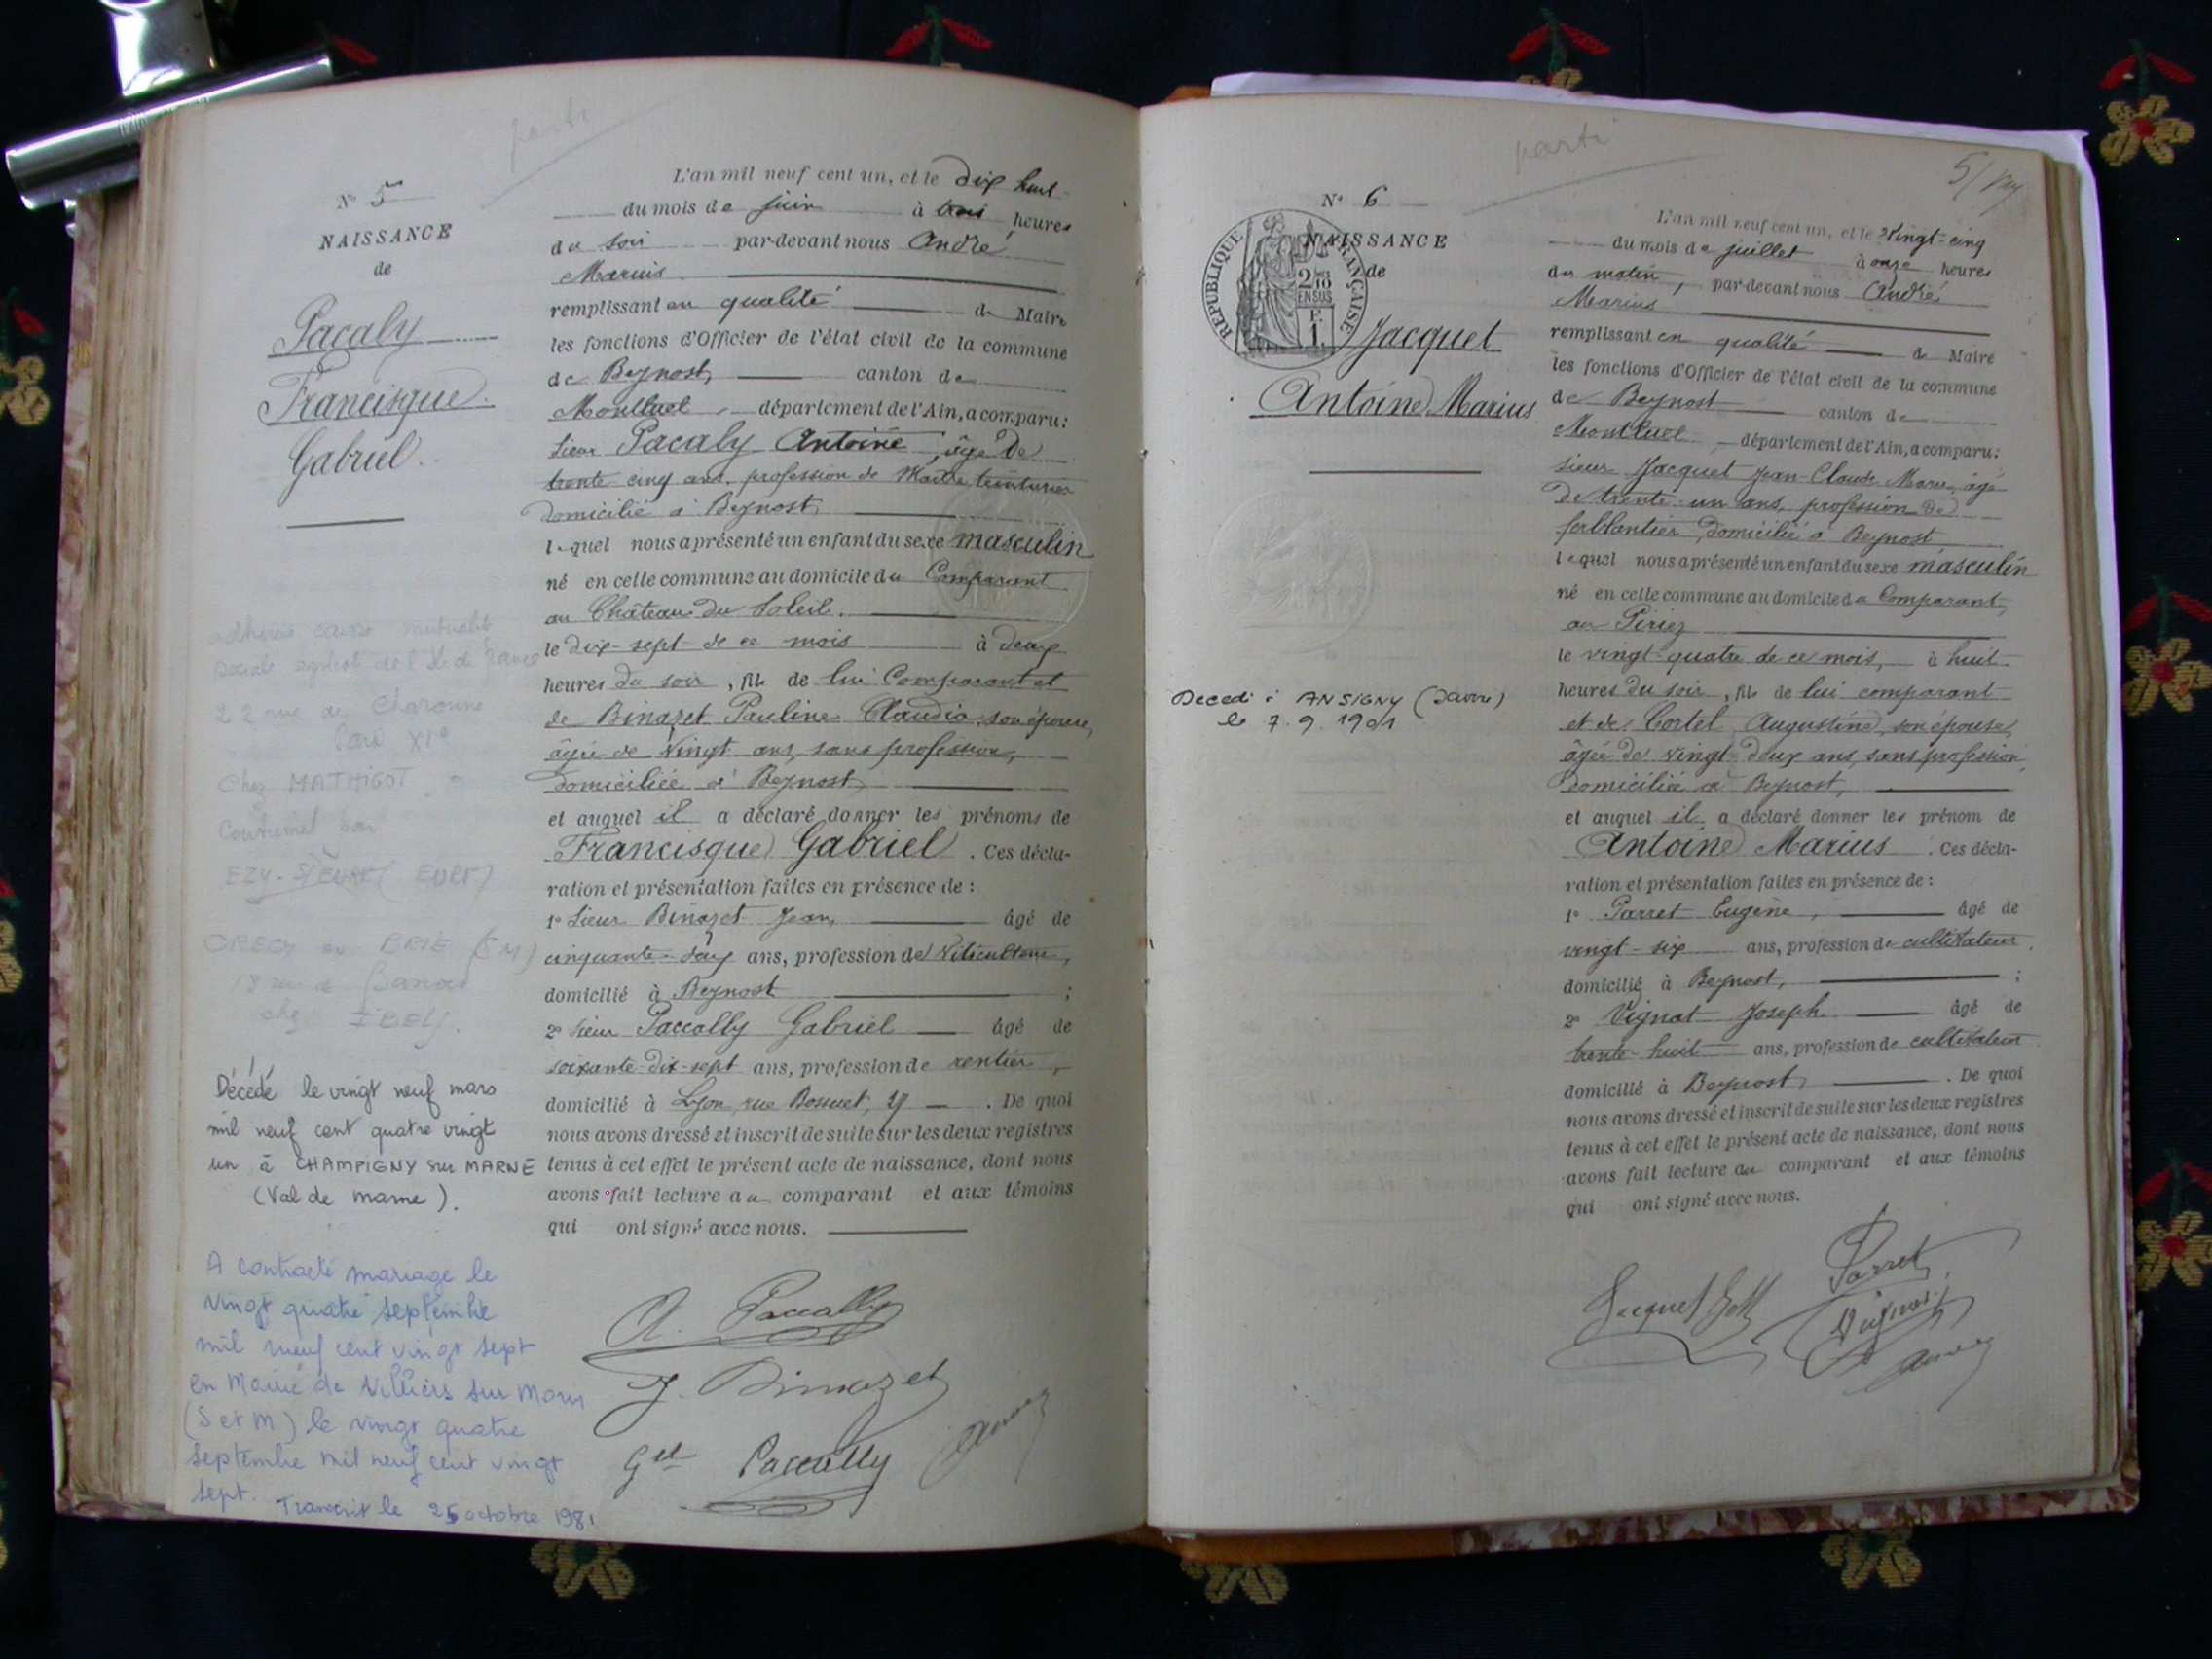 parti
N° 5
NAISSANCE
de
Pacaly
Francisque
Gabriel
L'an mil neuf cent un, et le dix huit
du mois de juin à trois heures
du soir par-devant nous André
Marius
remplissant en qualité de Maire
les fonctions d'Officier de l'état civil de la commune
de Beynost, canton de
Montluel, département de l'Ain, a comparu:
sieur Pacaly Antoine, âgé de
trente cinq ans, profession de Maître teinturier
domicilié à Beynost,
lequel nous a présenté un enfant du sexe masculin
né en cette commune au domicile du Comparant
au Château du Soleil.
le dix-sept de ce mois à deux
heures du soir, fils de lui Comparant et
de Binazet Pauline Claudia, son épouse,
âgée de vingt ans, sans profession,
domiciliée à Beynost,
et auquel il a déclaré donner les prénoms de
Francisque Gabriel. Ces décla-
ration et présentation faites en présence de :
1° Sieur Binazet Jean, âgé de
cinquante-deux ans, profession de Viticulteur,
domicilié à Beynost ;
2° Sieur Paccally Gabriel âgé de
soixante-dix-sept ans, profession de rentier,
domicilié à Lyon, rue Bossuet, . De quoi
nous avons dressé et inscrit de suite sur les deux registres
tenus à cet effet le présent acte de naissance, dont nous
avons fait lecture au comparant et aux témoins
qui ont signé avec nous.
A. Paccally
J. Binazet
Gel Paccally
22 rue de Charonne
Paris XIe
Chez MATHIGOT
Décédé le vingt neuf mars
mil neuf cent quatre vingt
un à CHAMPIGNY sur MARNE
(Val de marne).
A contracté mariage le
vingt quatre septembre
mil neuf cent vingt sept
en Mairie de Villiers sur Morin
(S et M) le vingt quatre
septembre mil neuf cent vingt
sept. Transcrit le 25 octobre 1981
parti
N° 6
NAISSANCE
de
RÉPUBLIQUE FRANÇAISE
2/10
EN SUS
F.
1.
Jacquet
Antoine Marius
Décédé à ANSIGNY (Savoie)
le 7.9.1901
L'an mil neuf cent un, et le vingt-cinq
du mois de juillet à onze heures
du matin, par-devant nous André
Marius
remplissant en qualité de Maire
les fonctions d'Officier de l'état civil de la commune
de Beynost canton de
Montluel, département de l'Ain, a comparu:
sieur Jacquet Jean-Claude Marie, âgé
de trente-un ans, profession de
ferblantier, domicilié à Beynost
lequel nous a présenté un enfant du sexe masculin
né en cette commune au domicile du Comparant,
au Piriez
le vingt-quatre de ce mois, à huit
heures du soir, fils de lui comparant
et de Cortel Augustine, son épouse,
âgée de vingt-deux ans, sans profession,
domiciliée à Beynost,
et auquel il a déclaré donner les prénom de
Antoine Marius. Ces décla-
ration et présentation faites en présence de :
1° Parret Eugène, âgé de
vingt-six ans, profession de cultivateur,
domicilié à Beynost, ;
2° Vignat Joseph âgé de
trente-huit ans, profession de cultivateur
domicilié à Beynost, . De quoi
nous avons dressé et inscrit de suite sur les deux registres
tenus à cet effet le présent acte de naissance, dont nous
avons fait lecture au comparant et aux témoins
qui ont signé avec nous.
Parret
Jacquet
Vignat